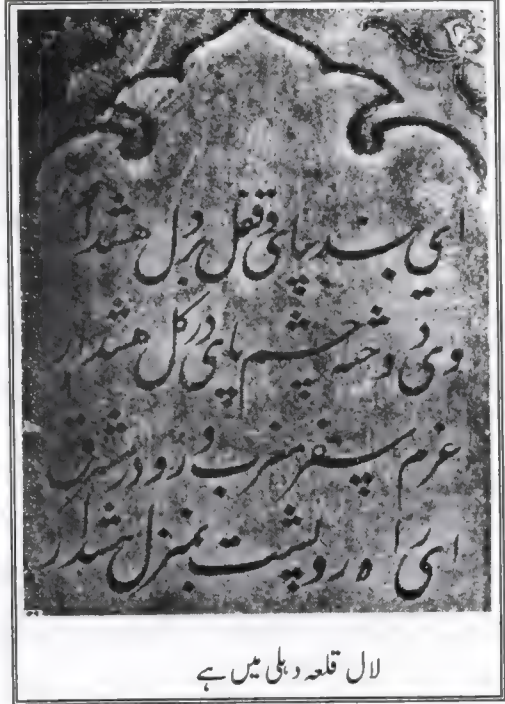 ای بند بپای و قفل بر دل هشدار
وی دوخته چشم پای در گل هشدار
عزم سفر مغرب و رو در مشرق
ای راه رو پشت بمنزل هشدار
لال قلعہ دہلی میں ہے